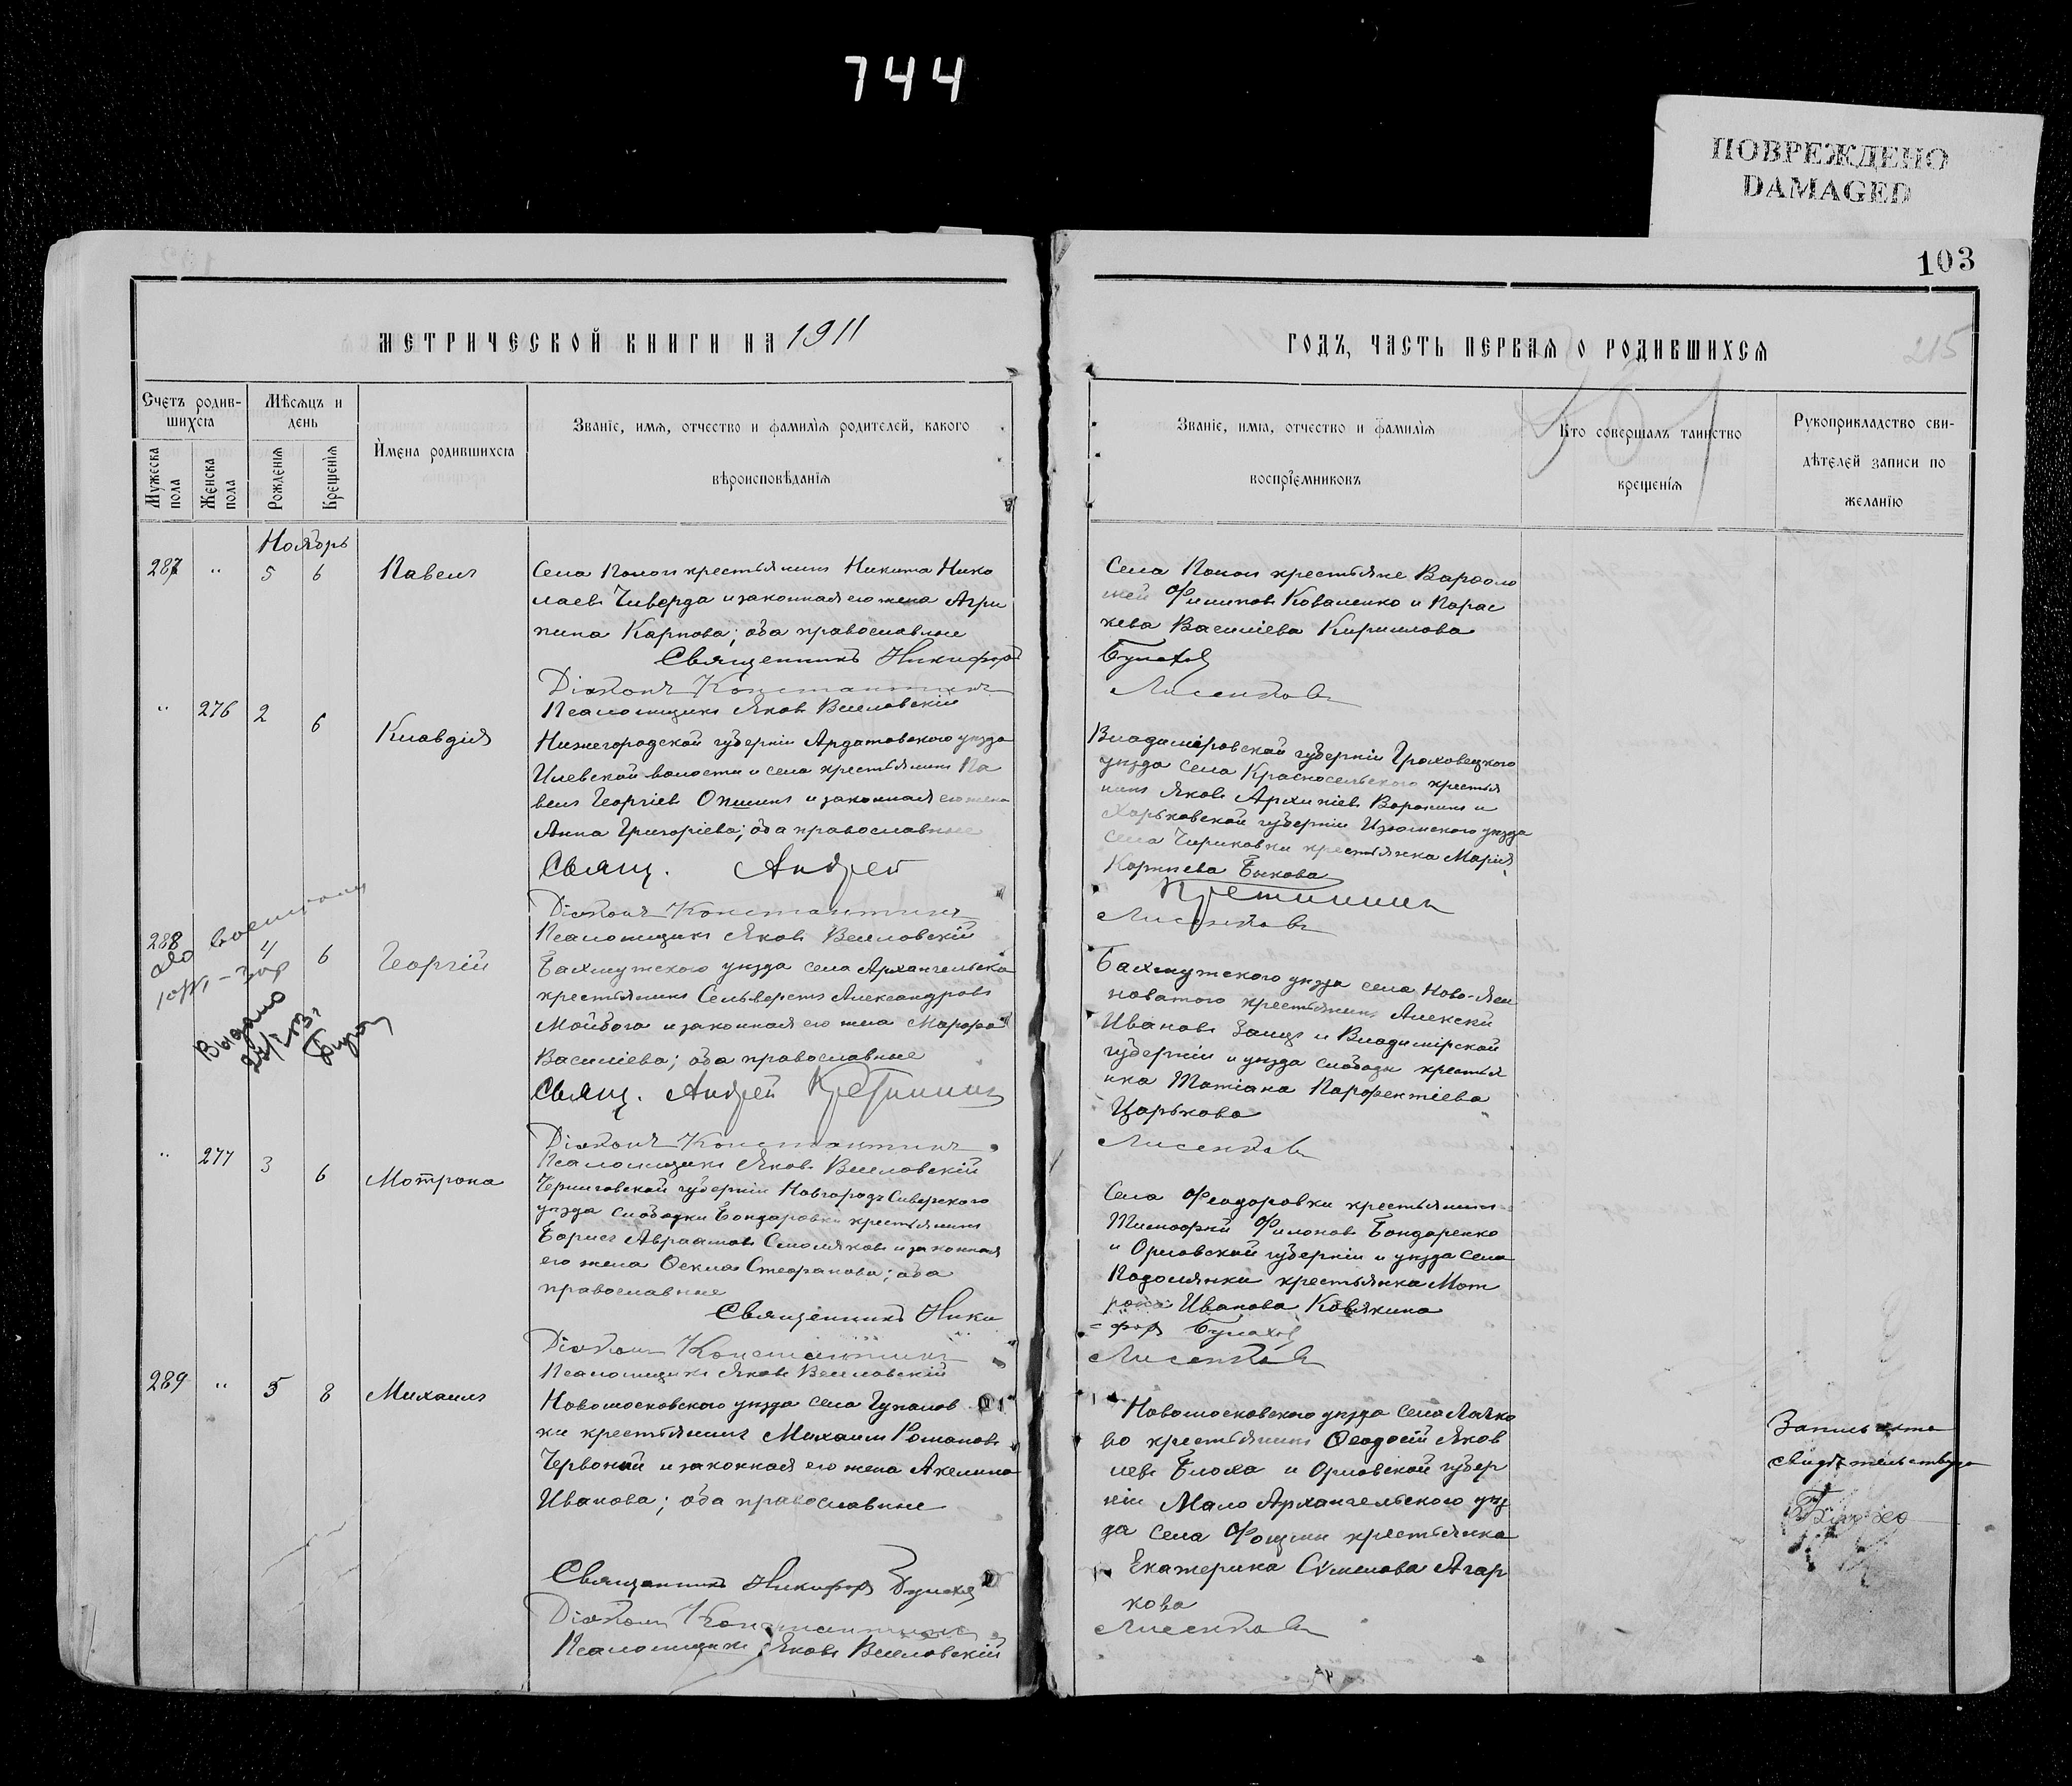 744
ПОВРЕЖДЕНО
DAMAGED
103
215
МЕТРИЧЕСКОЙ КНИГИ НА 1911
ГОДЪ, ЧАСТЬ ПЕРВАЯ О РОДИВШИХСЯ
Счетъ родив-
шихся
Мѣсяцъ и
день
Мужеска
пола
Женска
пола
Рожденія
Крещенія
Имена родившихся
Званіе, имя, отчество и фамилія родителей, какого
вѣроисповѣданія
Званіе, имя, отчество и фамилія
воспріемниковъ
Кто совершалъ таинство
крещенія
Рукоприкладство сви-
дѣтелей записи по
желанію
Ноябрь
287 " 5 6 Павелъ
Села крестьянинъ Никита Нико
лаевъ и законная его жена Агри
пина Карпова; оба православные
Священникъ Никифоръ
Діаконъ Константинъ
Псаломщикъ Яковъ
Села крестьяне Варфоло
мей Филиповъ Коваленко и Парас
кева Василіева Кирилова
Булахов
Лисенков
" 276 2 6 Клавдія
Нижегородской губерніи Ардатовского уезда
Илевской волости и села крестьянинъ Па
велъ Георгіевъ и законная его жена
Анна Григоріева; оба православные
Свящ. Андрей
Діаконъ Константинъ
Псаломщикъ Яковъ
Владиміровской губерніи Гроховецкого
уезда села Красносельского крестья
нинъ Яковъ Архипіевъ Воронинъ и
Харьковской губерніи Изюмского уезда
села крестьянка Марія
Быкова
Кретинин
Лисенков
288 " 4 6 Георгій
Выдано
Бахмутского уезда села Архангельска
крестьянинъ Сельверстъ Александровъ
Майбога и законная его жена Марфа
Василіева; оба православные
Свящ. Андрей Кретинин
Діаконъ Константинъ
Псаломщикъ Яковъ
Бахмутского уезда села Ново-Яси
новатого крестьянинъ Алексѣй
Ивановъ Заицъ и Владимірской
губерніи и уезда слободы крестья
нка Татіана Парфентіева
Царькова
Лисенков
" 277 3 6 Мотрона
Черниговской губерніи Новгородъ Сиверского
уезда слободки Бондаровки крестьянинъ
Борисъ Авраамовъ Смоляковъ и законная
его жена Ѳекла Стефанова; оба
православные
Священникъ Ники
Діаконъ Константинъ
Псаломщикъ Яковъ
Села Феодоровки крестьянинъ
Тимофей Филоновъ Бондаренко
и Орловской губерніи и уезда села
Подолянки крестьянка Мот
рона Иванова Ковякина
= форъ Булахов
Лисенков
289 " 5 8 Михаилъ
Новомосковского уезда села Гупалов
ки крестьянинъ Михаилъ Романовъ
Червоный и законная его жена Акелина
Иванова; оба православные
Священникъ Никифоръ Булахов
Діаконъ Константинъ
Псаломщикъ Яковъ
Новомосковского уезда села Личко
во крестьянинъ Ѳеодосій Яков
левъ Блоха и Орловской губер
ніи Мало Архангельского уез
да села Фощни крестьянка
Екатерина Агар
кова
Лисенков